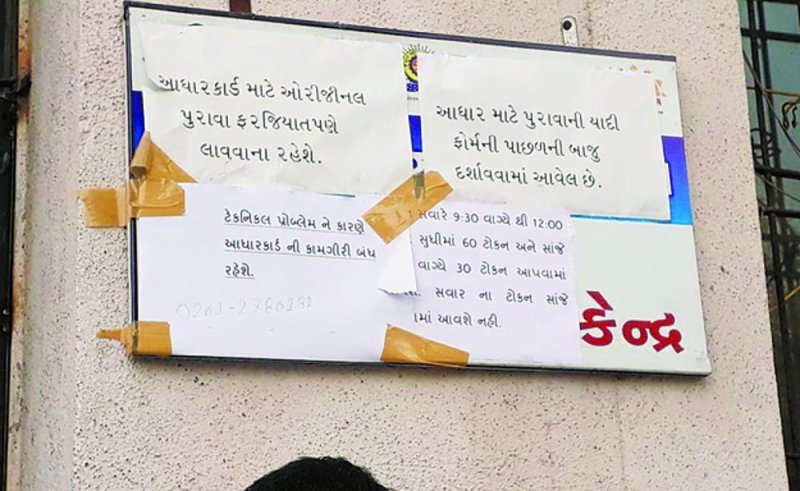 આધારકાર્ડ માટે ઓરીજીનલ
પુરાવા ફરજિયાતપણે
લાવવાના રહેશે.
આધાર માટે પુરાવાની યાદી
ફોર્મની પાછળની બાજુ
દર્શાવવામાં આવેલ છે.
ટેકનિકલ પ્રોબ્લેમ ને કારણે
આધારકાર્ડ ની કામગીરી બંધ
રહેશે.
સવારે 9:30 વાગ્યે થી 12:00
સુધીમાં 60 ટોકન અને સાંજે
વાગ્યે 30 ટોકન આપવામાં
સવાર ના ટોકન સાંજે
માં આવશે નહી.
કેન્દ્ર